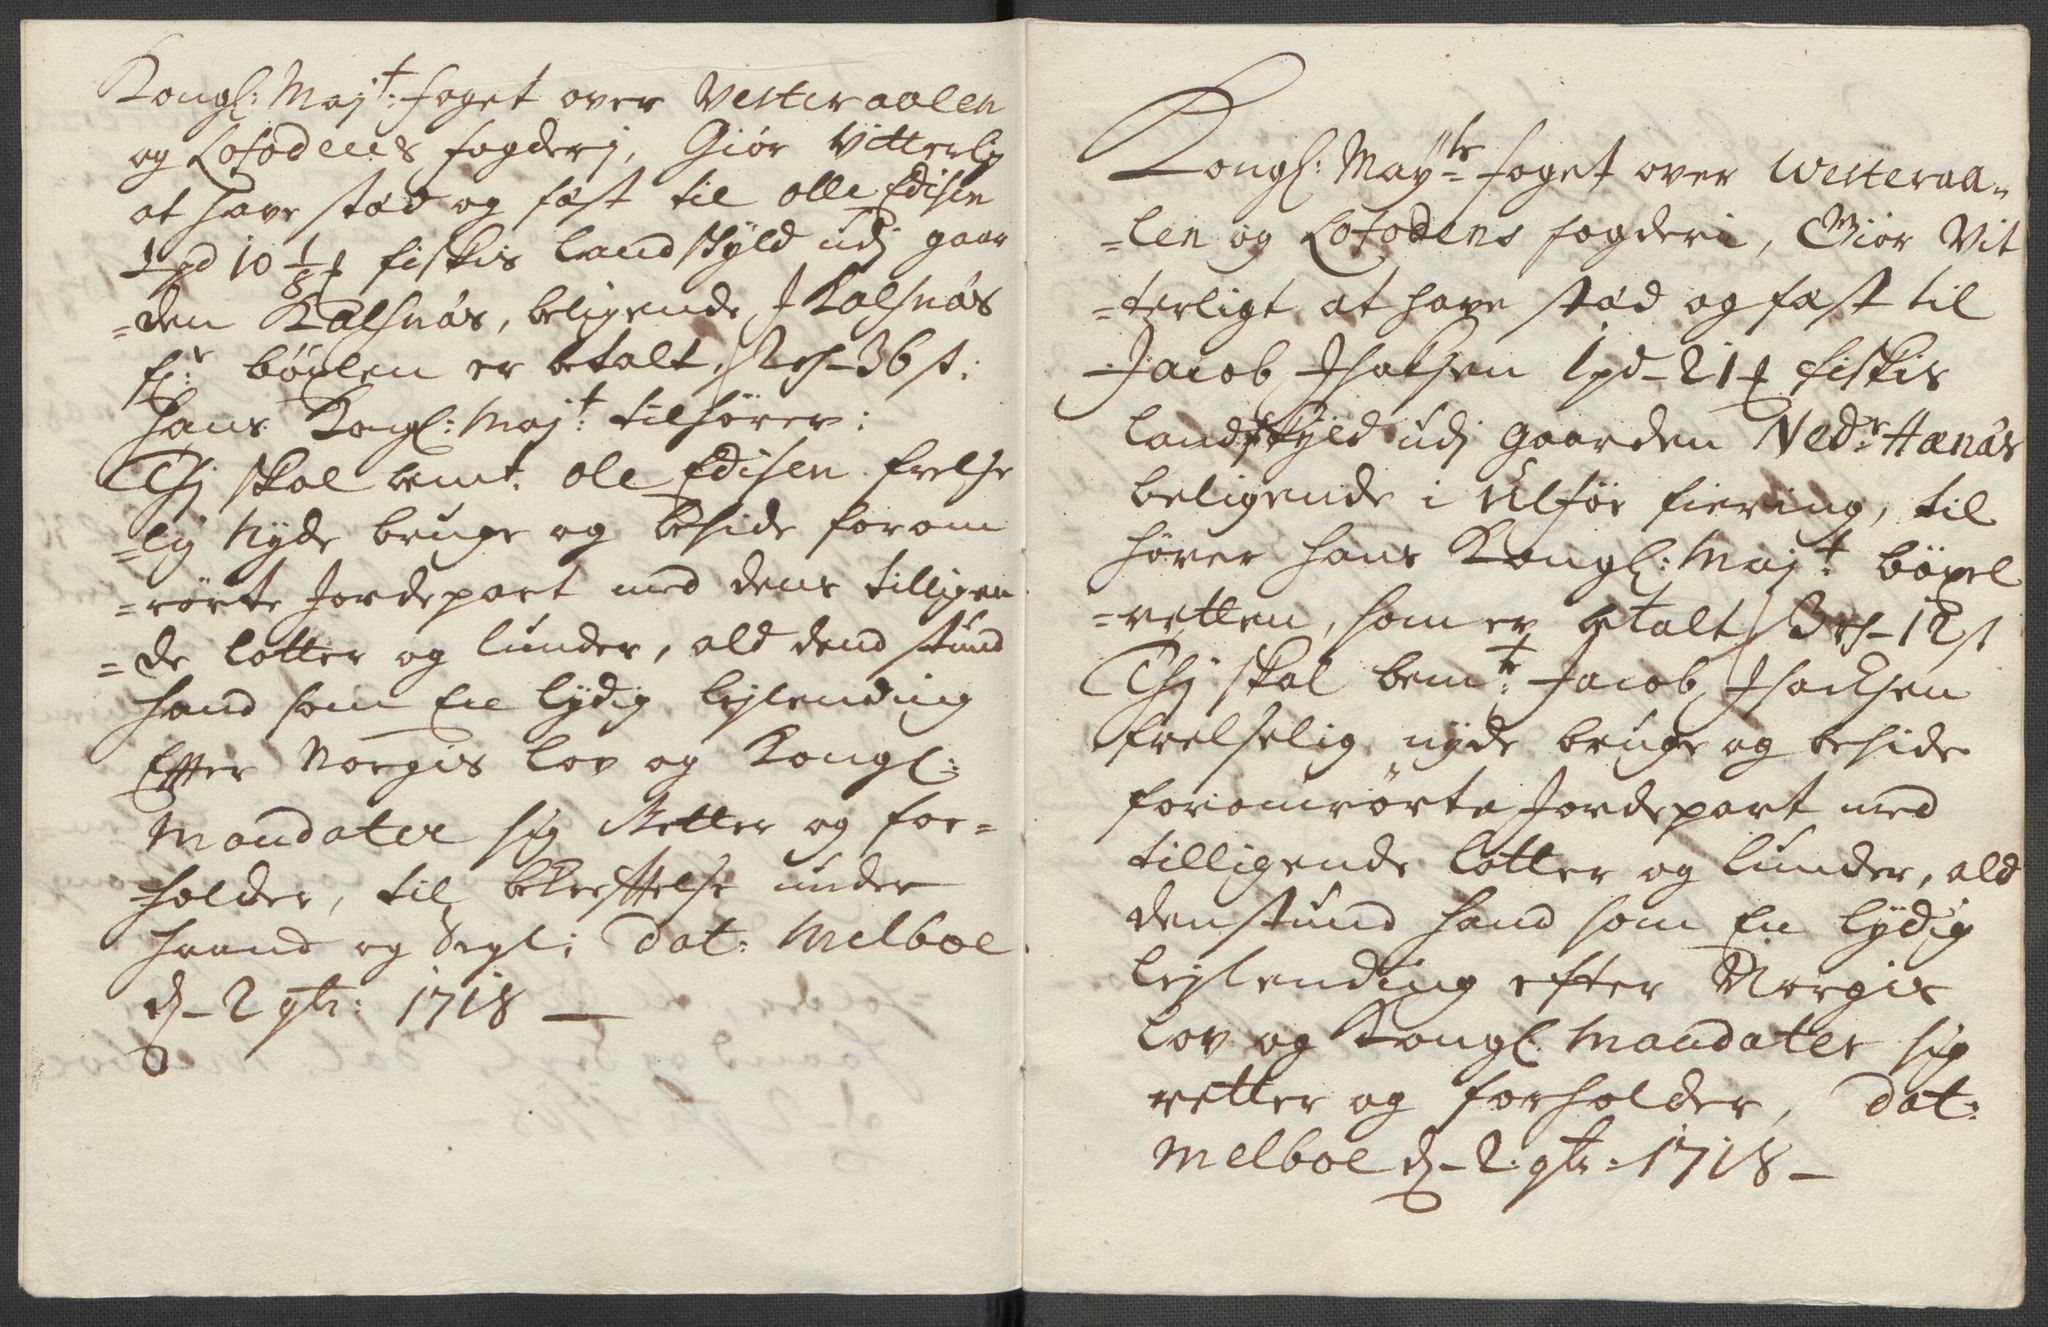 Kongl: Maj:t foget over Vesteraalen
og Lofodens fogderj, Giör Vitterlig
at have sted og fæst til Olle Edisen
1 pd 10 1/8 ℔ fiskis landskyld udj gaar
=den Kalsnæs, beligende J Kalsnæs
f:r böxlen er betalt 2 rd- 36 s:
hans Kongl: Maj:t tilhörer:
Thj skal bemt: Ole Edisen frelse
=lig Nyde bruge og beside forom
=rörte Jordepart med dens tilligen
=de lotter og lunder, ald dend stund
hand som En lydig lejlending
Efter Norgis lov og Kongl:
Mandater sig Retter og for=
holder, til bekreftelse under
haand og Segl: Dat: Melboe
d- 2 9br: 1718 —
Kongl: Mayts foget over Westeraa=
=len og Lofodens fogderi, Giör Vit
=terligt at have sted og fæst til
Jacob Jsachsen 1 pd- 21 ℔ fiskis
landskyld udj gaarden Ned:r Hanæs
beligende i Ulför fiering, til
hörer hans Kongl: Maj:t böxel
=retten, som er betalt 3 rd- 12 s
Thj skal bemte: Jacob Jsachsen
frelselig nyde bruge og beside
foromrörte Jordepart med
tilligende lotter og lunder, ald
denstund hand som En lydig
lejlending efter Norgis
lov og Kongl. Mandater sig
retter og forholder, Dat:
Melboe d- 2. 9br: 1718 —